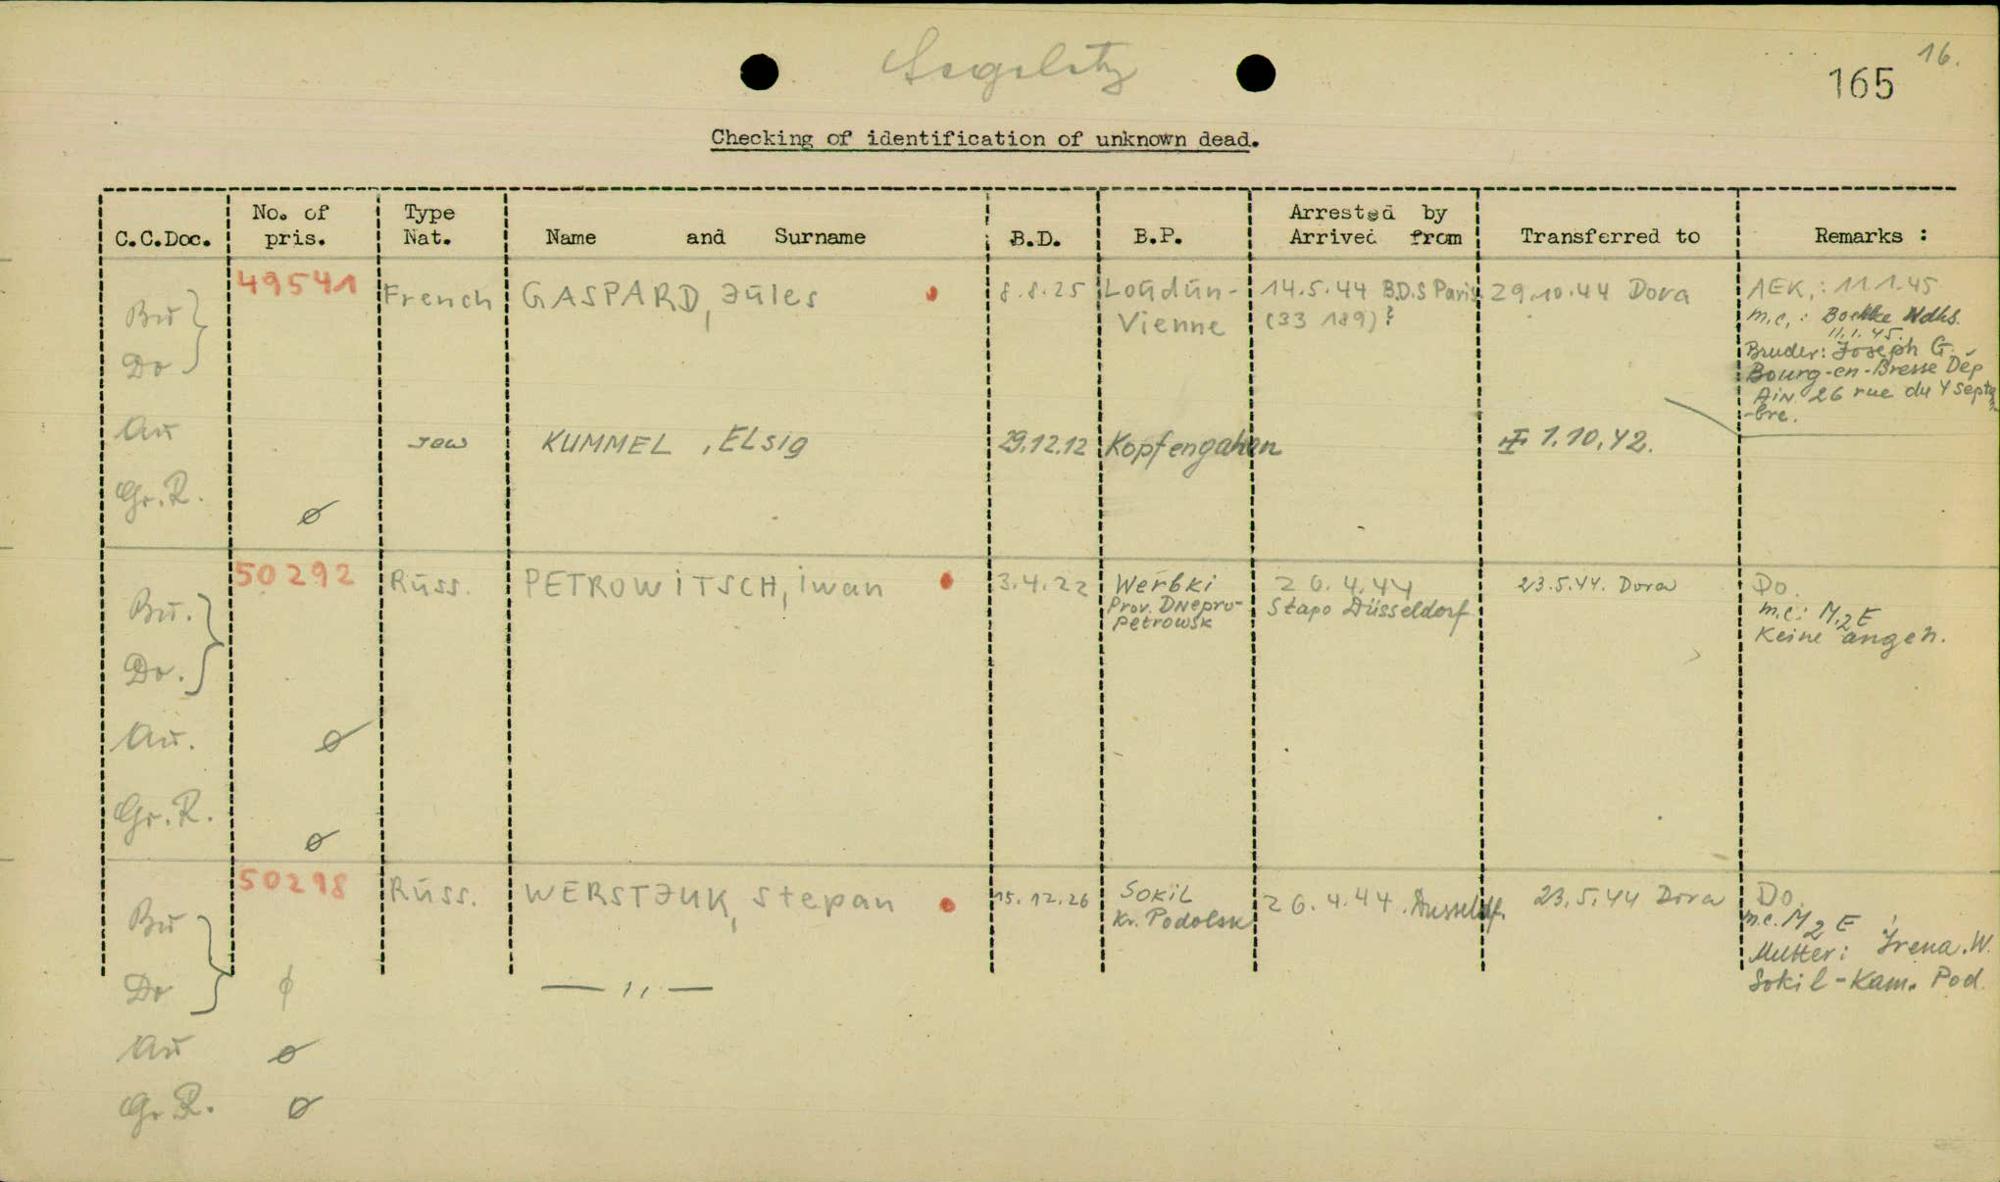 Segeletz
16.
165
Checking of identification of unknown dead.
C.C.Doc. No. of pris. Type Nat. Name and Surname B.D. B.P. Arrested by Arrived from Transferred to Remarks :
49541 French GASPARD, Jules 8.8.25 Loudun- 14.5.44 B.D.S Paris 29.10.44 Dora AEK,: 11.1.45
Bu Vienne (33 189)? m.c,: Boelke Ndhs.
11.1.45.
Do Bruder: Joseph G.
Bourg-en-Bresse Dép
AiN 26 rue du 4 Septem
-bre.
Au Jew KUMMEL , ELsig 29.12.12 Kopfengahan 1.10.42.
Gr.R. ø
50292 Russ. PETROWiTSCH, iwan 3.4.22 Werbki 26.4.44 23.5.44. Dora Do.
Bu. Prov. DNepro- Stapo Düsseldorf m.c: M,2 E
petrowsk Keine angeh.
Do.
Au. ø
Gr.R. ø
50298 Russ. WERSTJUK, Stepan 15.12.26 SOKiL 26.4.44. Dusseldf. 23.5.44 Dora Do.
Bu Kr. Podolsk m.c. M 2 E
Mutter: Irena.W.
Do ϕ — ,, — Sokil-Kam. Pod.
Au ø
Gr R. ø